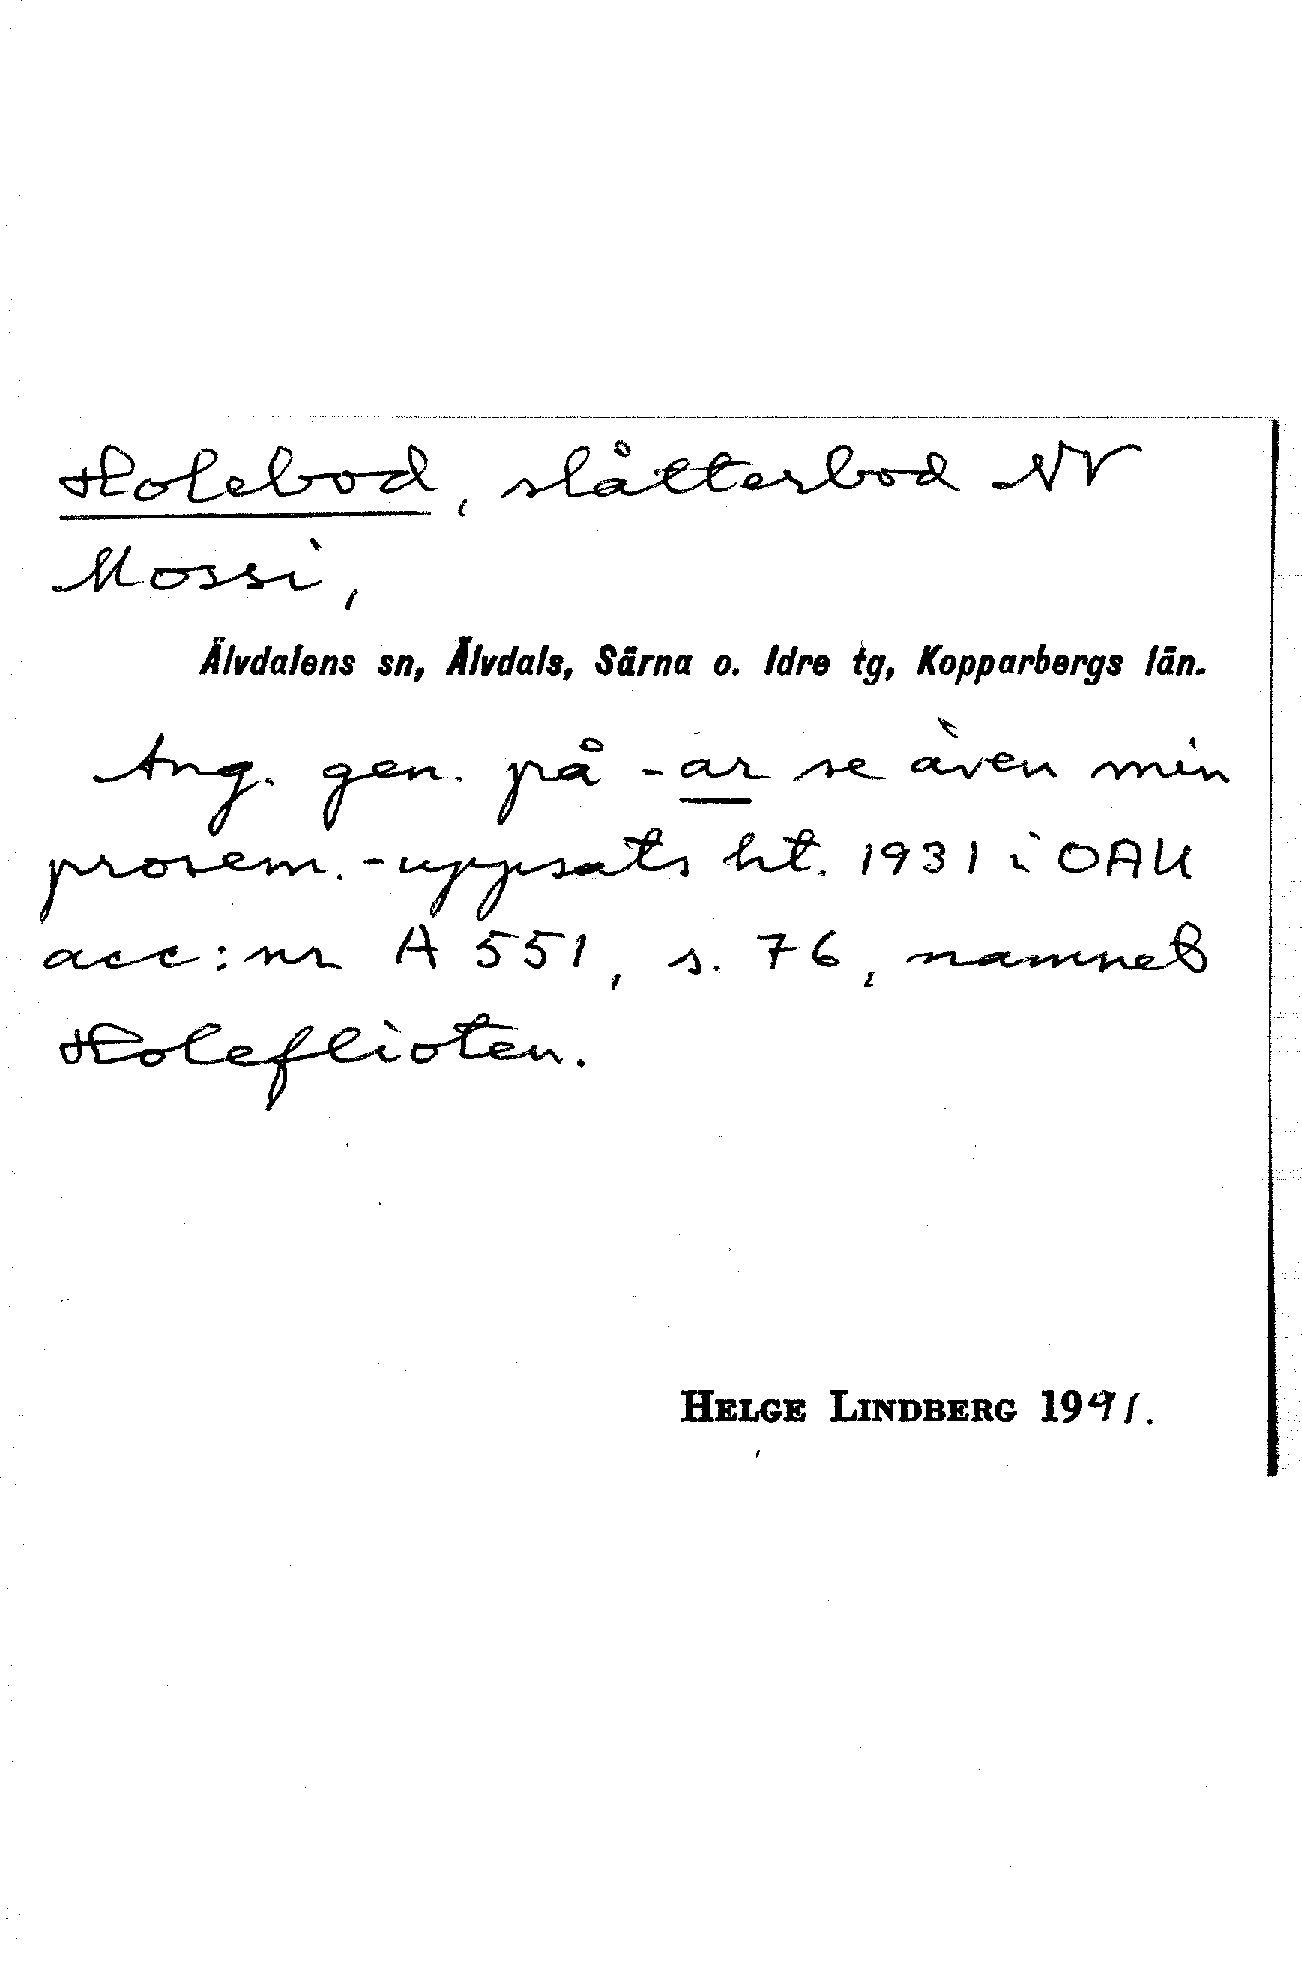 Holebod, slåtterbod NV
Mossi,
Älvdalens sn, Älvdals, Särna o. Idre tg, Kopparbergs län.
Ang. gen. på -ar se även min
prosem.-uppsats ht. 1931 i OAU
acc:nr A 551, s. 76, namnet
Holeflioten.
HELGE LINDBERG 1941.